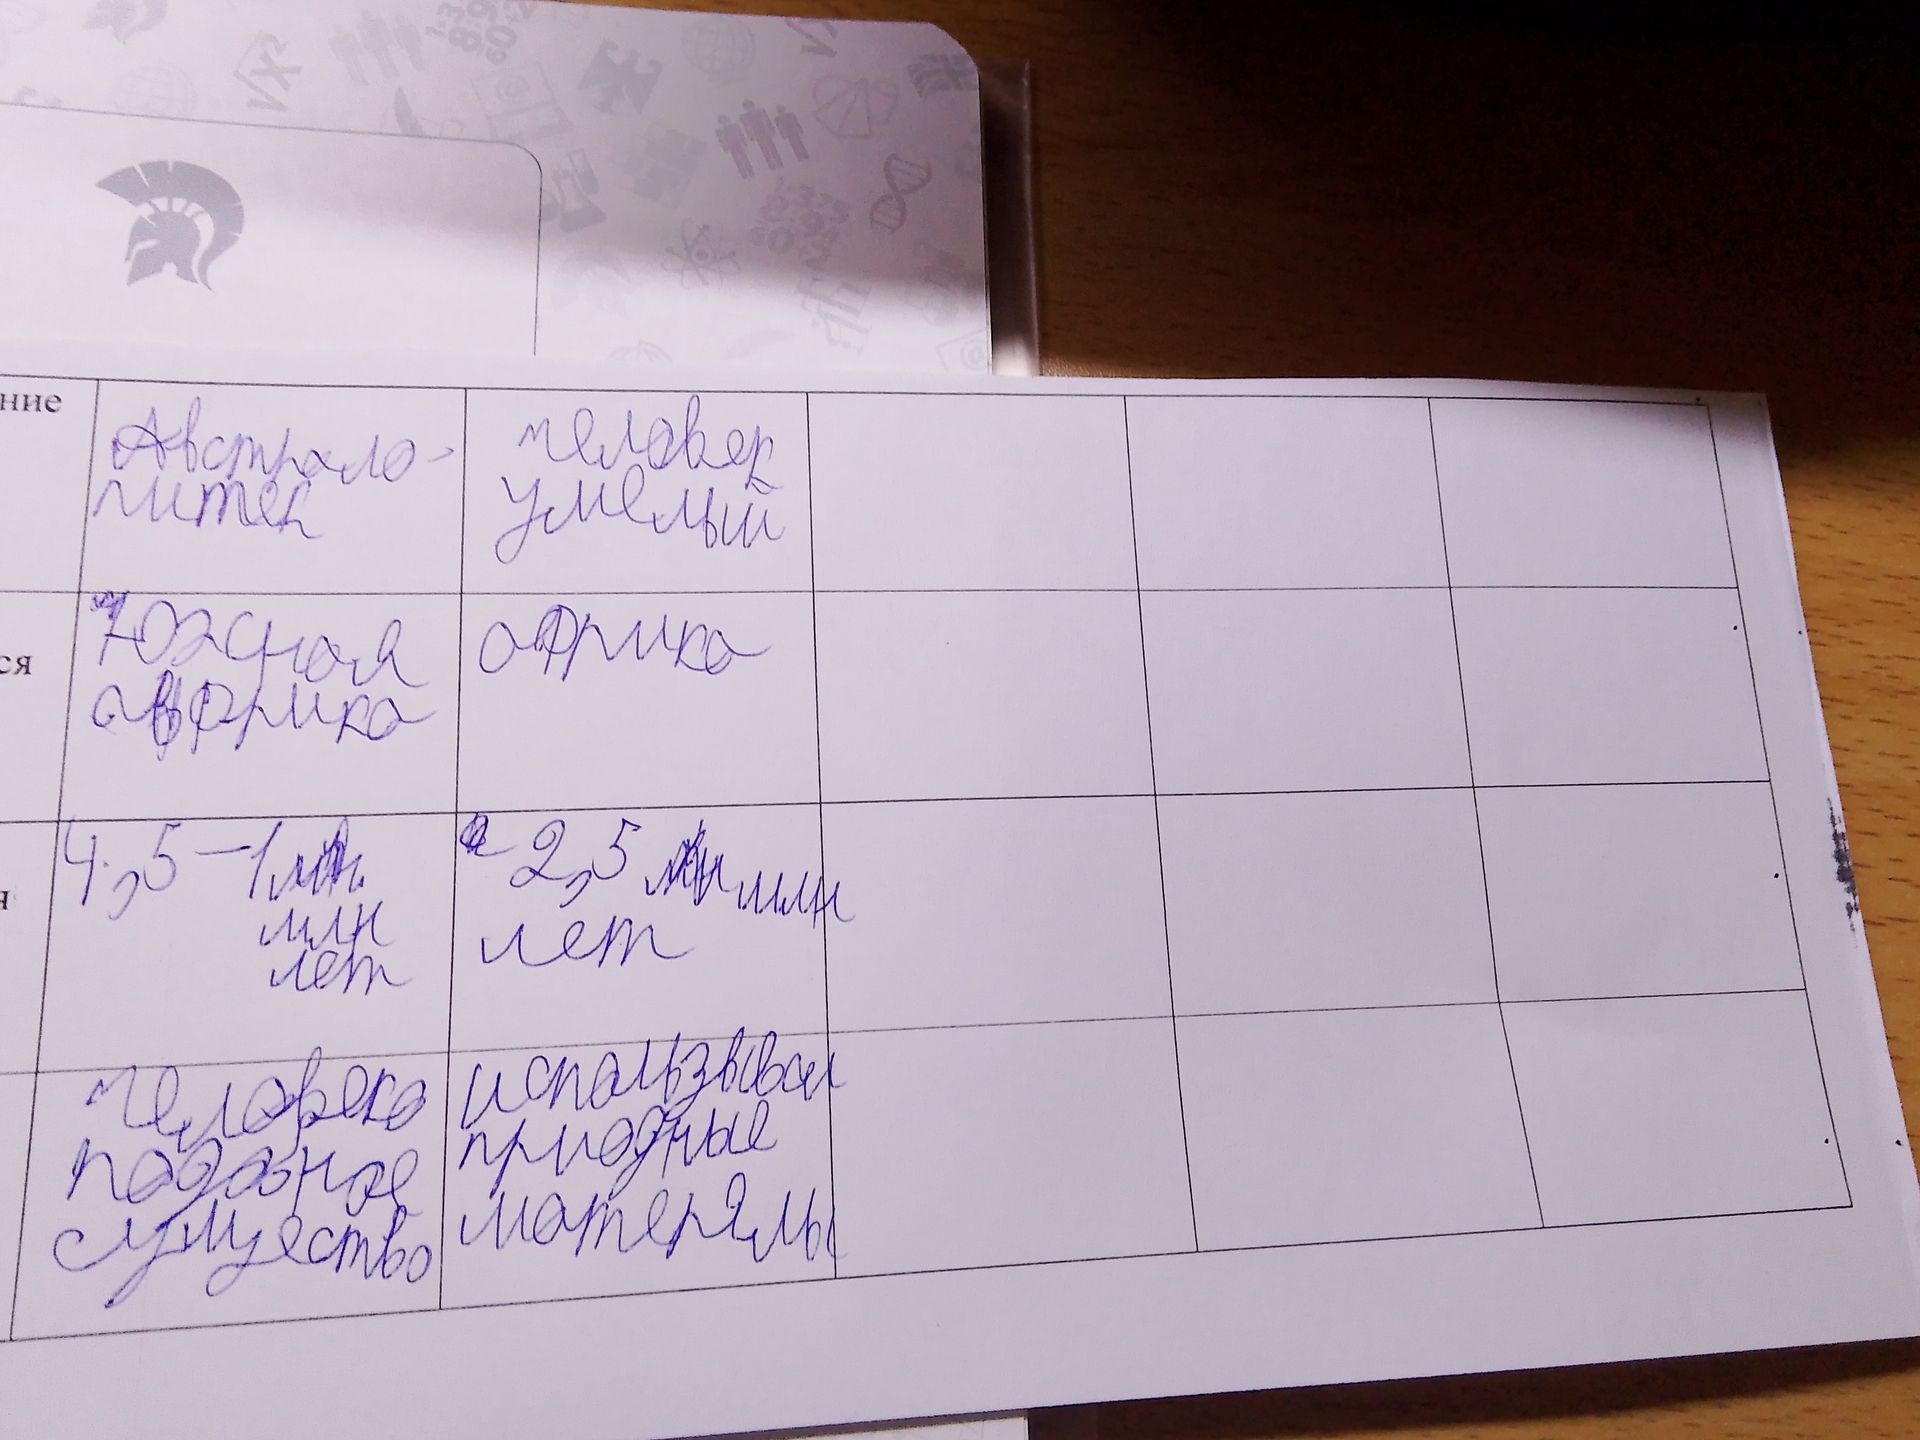 ние
Австрало-
питек
человек
умелый
ся
Южная
африка
африка
4,5-1
млн
лет
2,5 млн
лет
я
человеко
подобное
существо
использвовал
приодные
матерялы